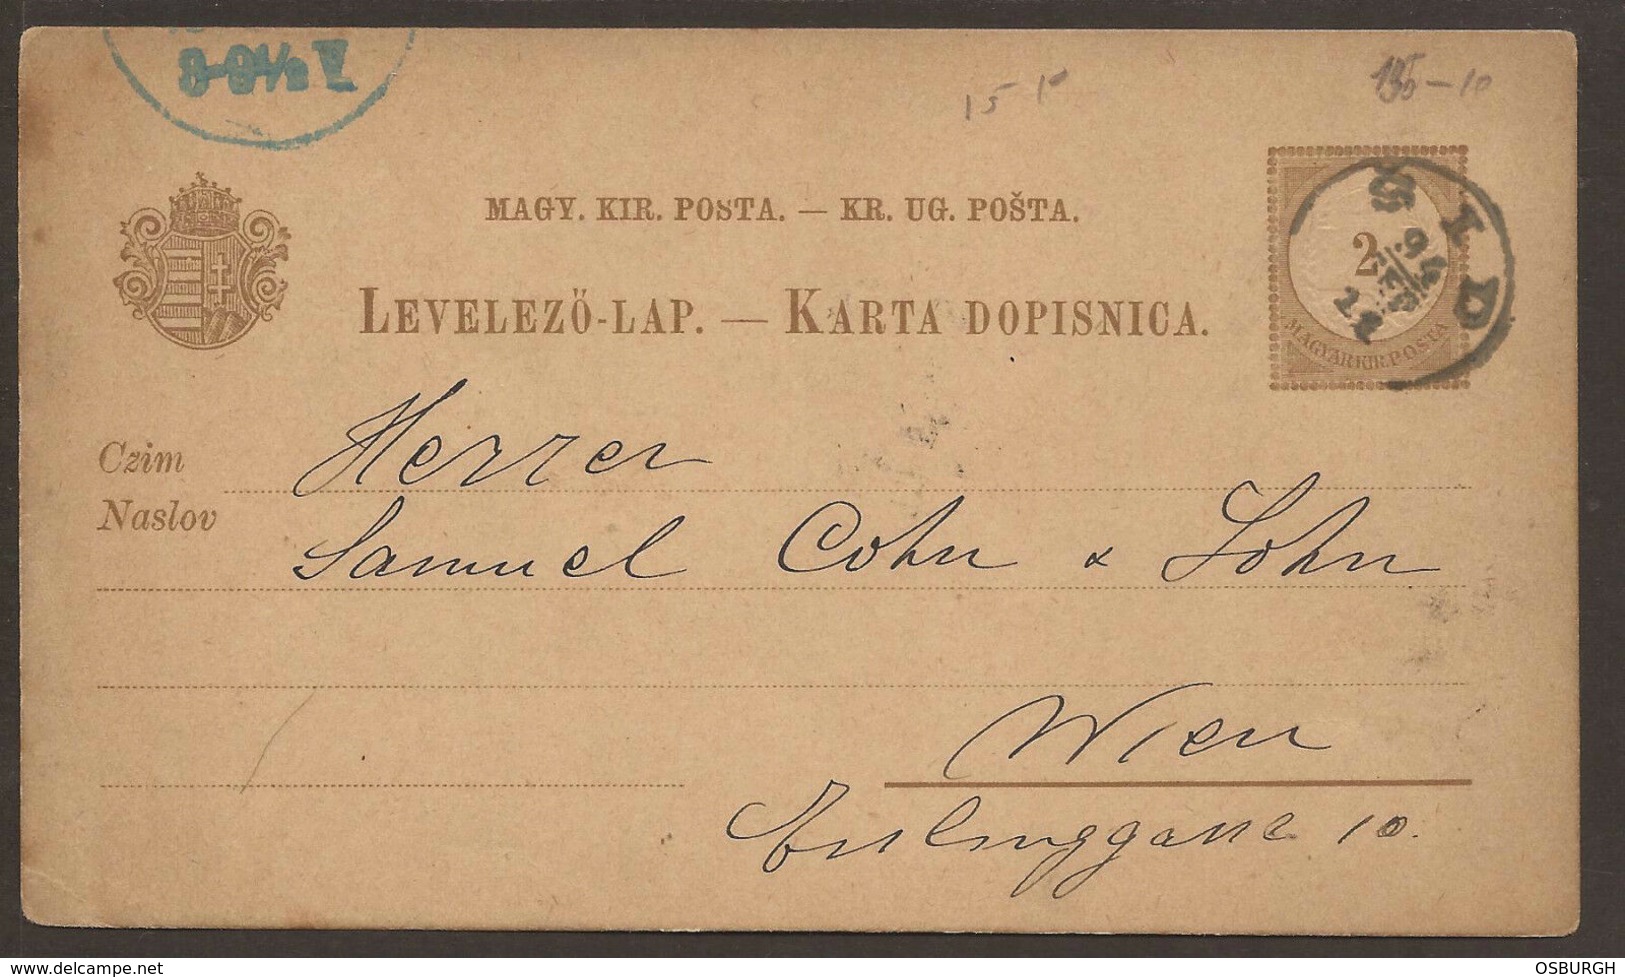 8-9½ V.
15 15
195-10
MAGY. KIR. POSTA. — KR. UG. POŠTA.
LEVELEZŐ-LAP. — KARTA DOPISNICA.
2
MAGYAR KIR. POSTA
SID
94
FEB
Czim
Naslov
Herren
Samuel Cohn & Sohn
Wien
Esslinggasse 10.
delcampe.net
OSBURGH